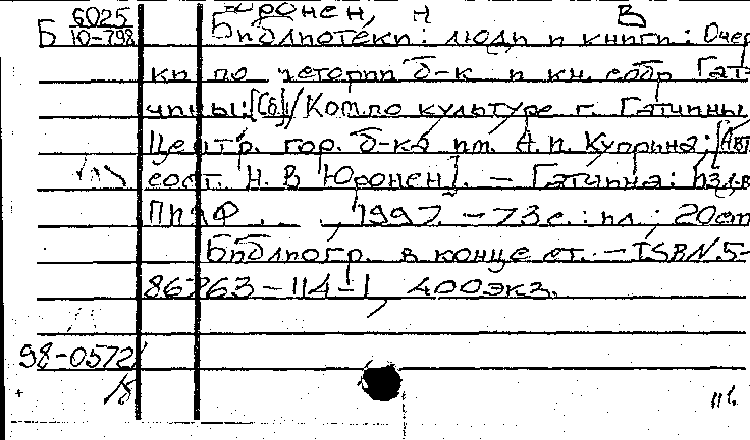 Юронен, Н В
Б 6025
Ю-798
Библиотеки: люди и книги: Очер
ки по истории б-к и кн. собр Гат-
чины: [Сб] / Ком. по культуре г. Гатчины
Центр. гор. б-ка им. А. И. Куприна; [Авт
сост. Н. В Юронен]. – Гатчина: Изд-в
ПИЯФ, 1997. – 73 с.: ил.; 20 см
Библиогр. в конце ст. – ISBN 5-
86763-114-1, 400 экз.
98-0572/
18